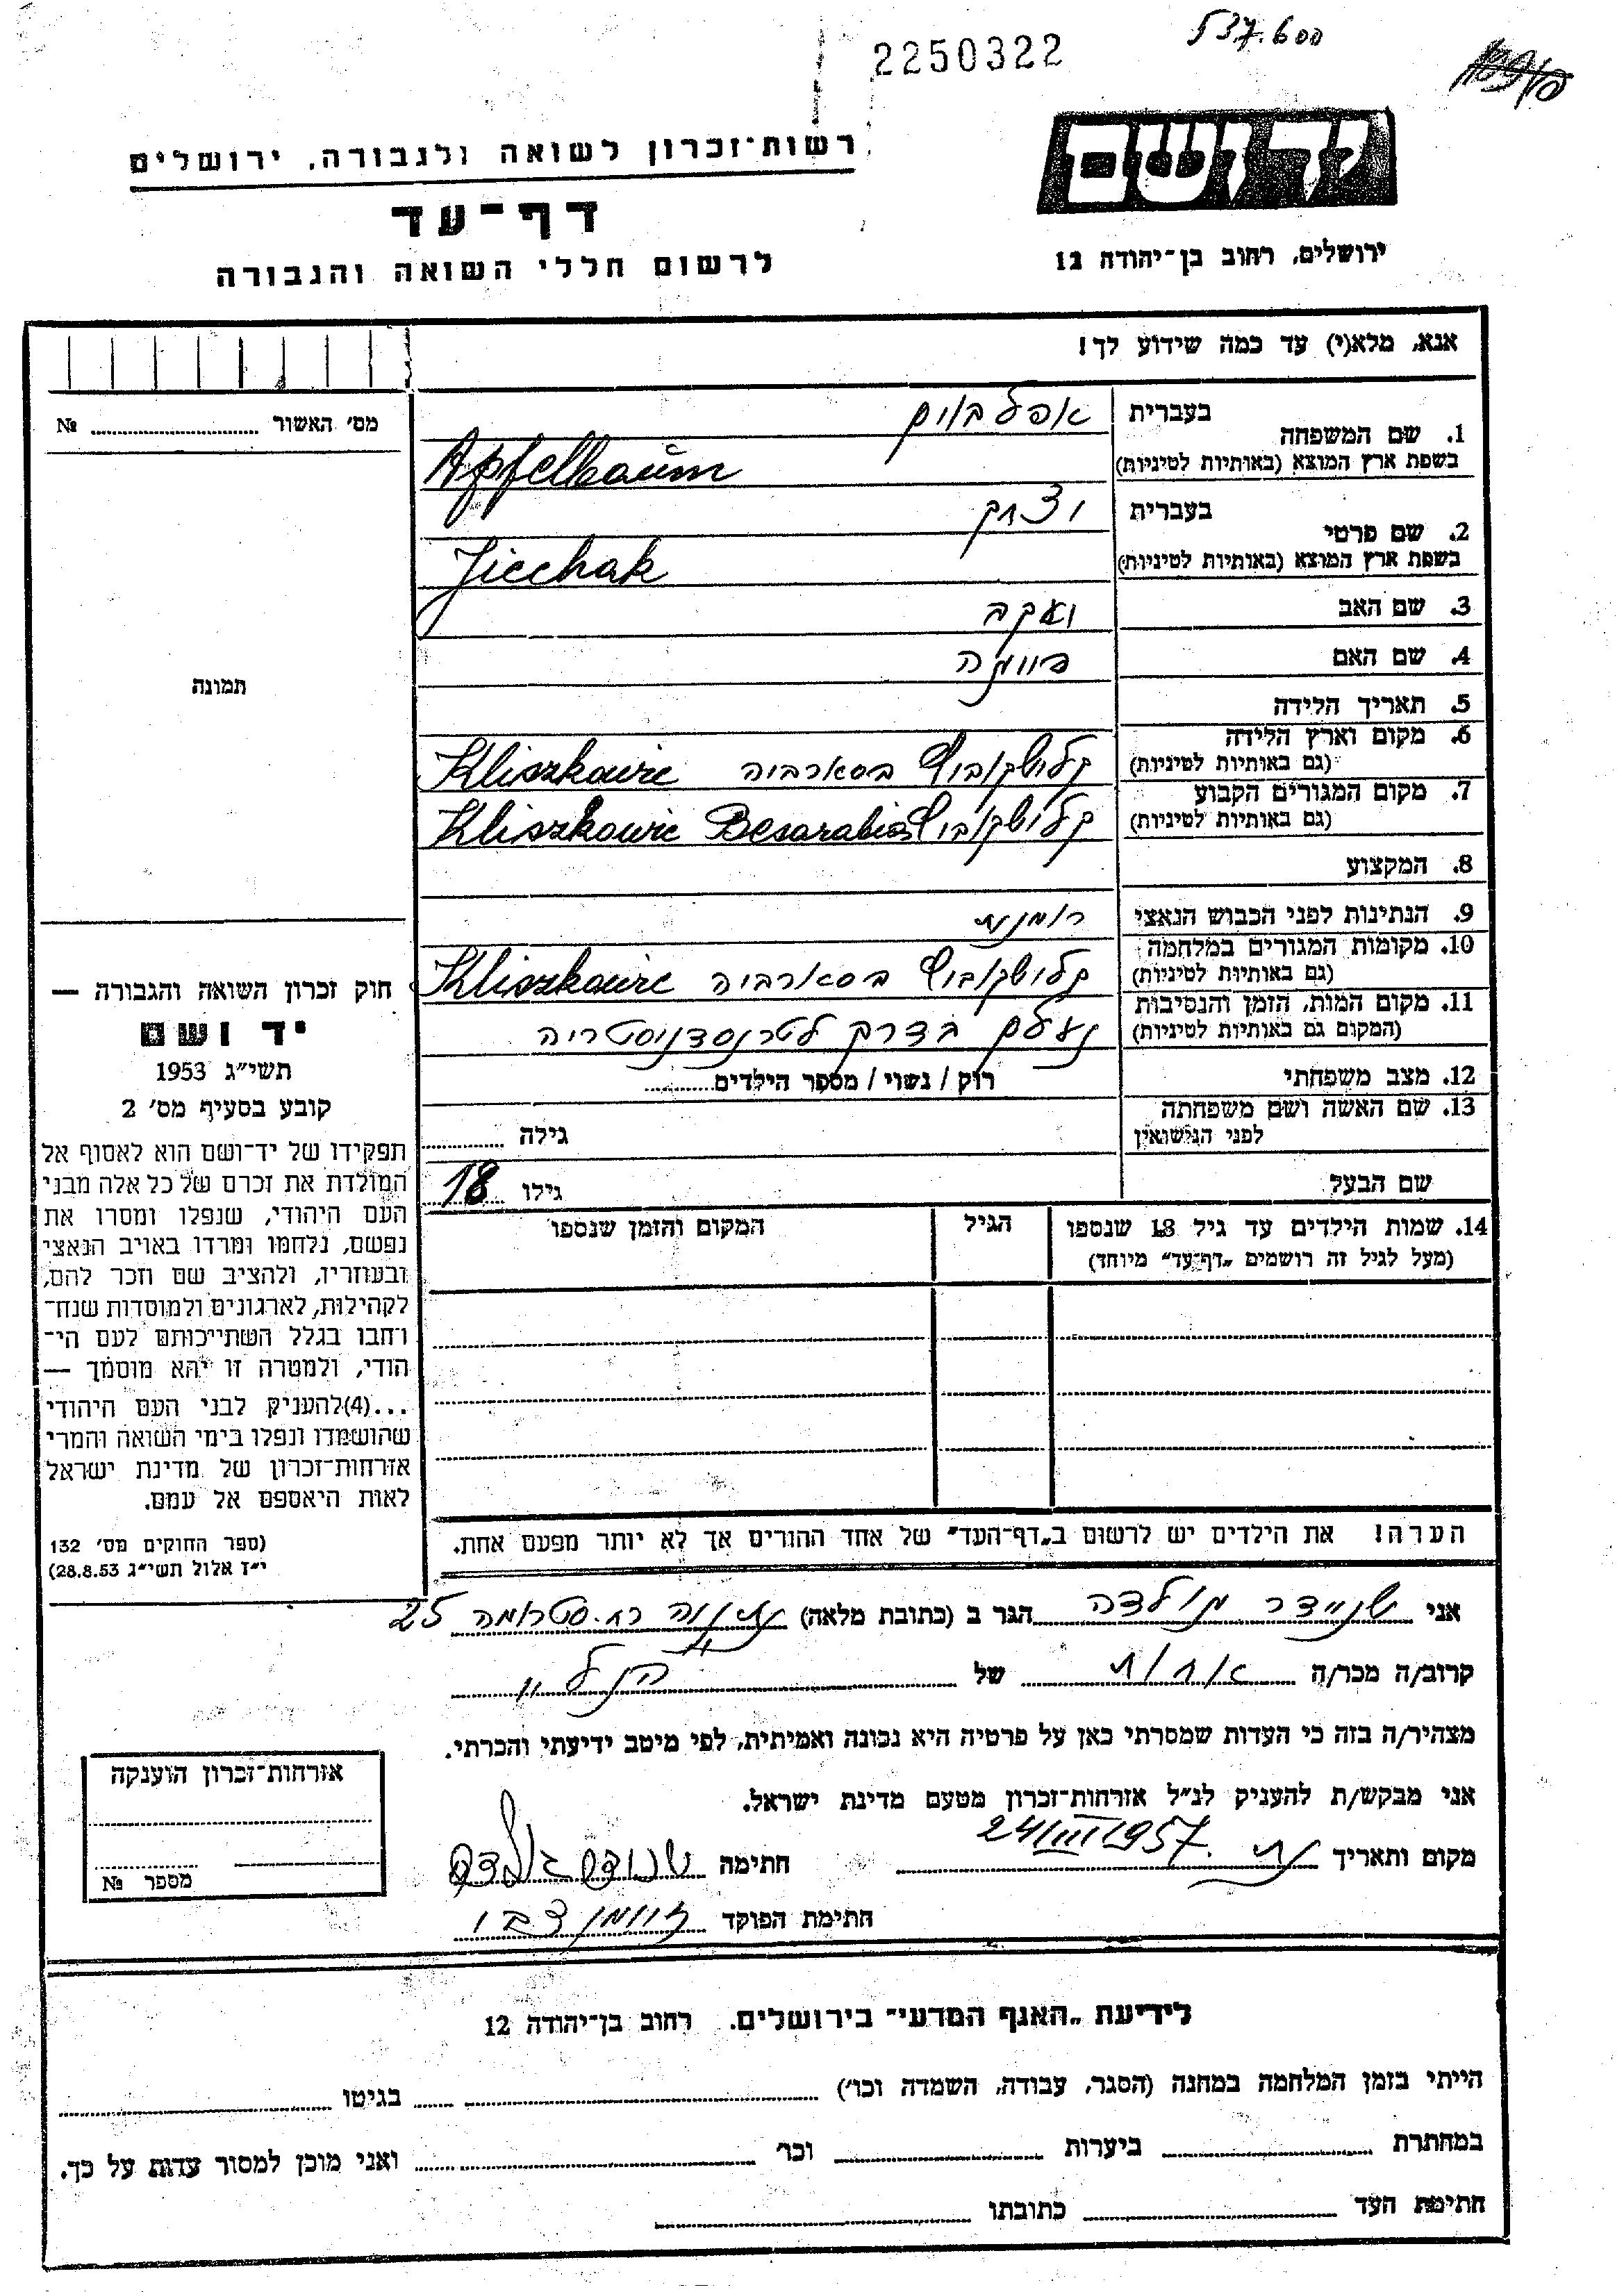 2250322
537.600
רשות־זכרון לשואה ולגבורה, ירושלים
דף־עד
לרשום חללי השואה והגבורה
יד ושם
ירושלים, רחוב בן־יהודה 12
אנא, מלא(י) עד כמה שידוע לך!
מס׳ האשור № 
תמונה
1. שם המשפחה
בעברית אפלבוים
בשפת ארץ המוצא (באותיות לטיניות) Apfelbaum
2. שם פרטי
בעברית יצחק
בשפת ארץ המוצא (באותיות לטיניות) Jicchak
3. שם האב יעקב
4. שם האם
5. תאריך הלידה
6. מקום וארץ הלידה (גם באותיות לטיניות) קלישקוביץ בסארביה Kliszkowic
7. מקום המגורים הקבוע (גם באותיות לטיניות) קלישקוביץ Kliszkowic Besarabia
8. המקצוע
9. הנתינות לפני הכבוש הנאצי רומנית
10. מקומות המגורים במלחמה (גם באותיות לטיניות) קלישקוביץ בסארביה Kliszkowic
11. מקום המות, הזמן והנסיבות (המקום גם באותיות לטיניות) נעלם בדרך לטרנסדניסטריה
12. מצב משפחתי רוק / נשוי / מספר הילדים
13. שם האשה ושם משפחתה לפני הנישואין גילה
שם הבעל גילו 18
14. שמות הילדים עד גיל 18 שנספו
(מעל לגיל זה רושמים „דף־עד״ מיוחד)
הגיל
המקום והזמן שנספו
הערה! את הילדים יש לרשום ב„דף־העד״ של אחד ההורים אך לא יותר מפעם אחת.
חוק זכרון השואה והגבורה —
יד ושם
תשי״ג 1953
קובע בסעיף מס׳ 2
תפקידו של יד־ושם הוא לאסוף אל
המולדת את זכרם של כל אלה מבני
העם היהודי, שנפלו ומסרו את
נפשם, נלחמו ומרדו באויב הנאצי
ובעוזריו, ולהציב שם וזכר להם,
לקהילות, לארגונים ולמוסדות שנח־
רחבו בגלל השתייכותם לעם הי־
הודי, ולמטרה זו יהא מוסמך —
...(4)להעניק לבני העם היהודי
שהושמדו ונפלו בימי השואה והמרי
אזרחות־זכרון של מדינת ישראל
לאות היאספם אל עמם.
(ספר החוקים מס׳ 132
י״ז אלול תשי״ג 28.8.53)
אני שניידר גולדה הגר ב (כתובת מלאה) נתניה רח. סטרומה 25
קרוב/ה מכר/ה אחות של הנ״ל
מצהיר/ה בזה כי העדות שמסרתי כאן על פרטיה היא נכונה ואמיתית, לפי מיטב ידיעתי והכרתי.
אני מבקש/ת להעניק לנ״ל אזרחות־זכרון מטעם מדינת ישראל.
מקום ותאריך 24/III/1957 חתימה
חתימת הפוקד
אזרחות־זכרון הוענקה
מספר №
לידיעת „האגף המדעי״ בירושלים. רחוב בן־יהודה 12
הייתי בזמן המלחמה במחנה (הסגר, עבודה, השמדה וכו׳) בגיטו
במחתרת ביערות וכו׳ ואני מוכן למסור עדות על כך.
חתימת העד כתובתו